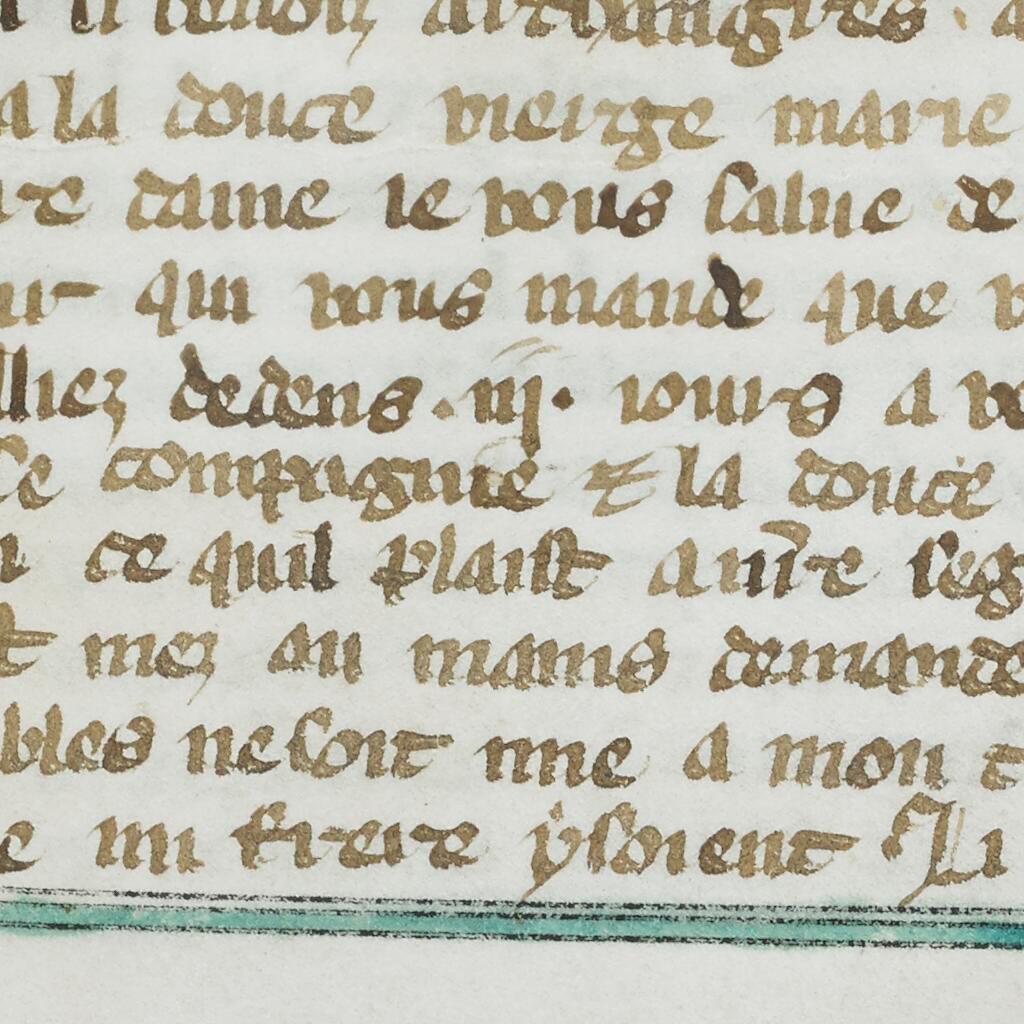 li benois archangles · a
a la douce vierge marie
re dame ie vous salue de
ur qui vous mande que v
lliez dedens · iij · iours a vo
ce compaignie ⁊ la douce
ce quil plaist a nr̃e seg
t mez au mains demande
bles ne soit nne a mon t
e mi frere y soient Li